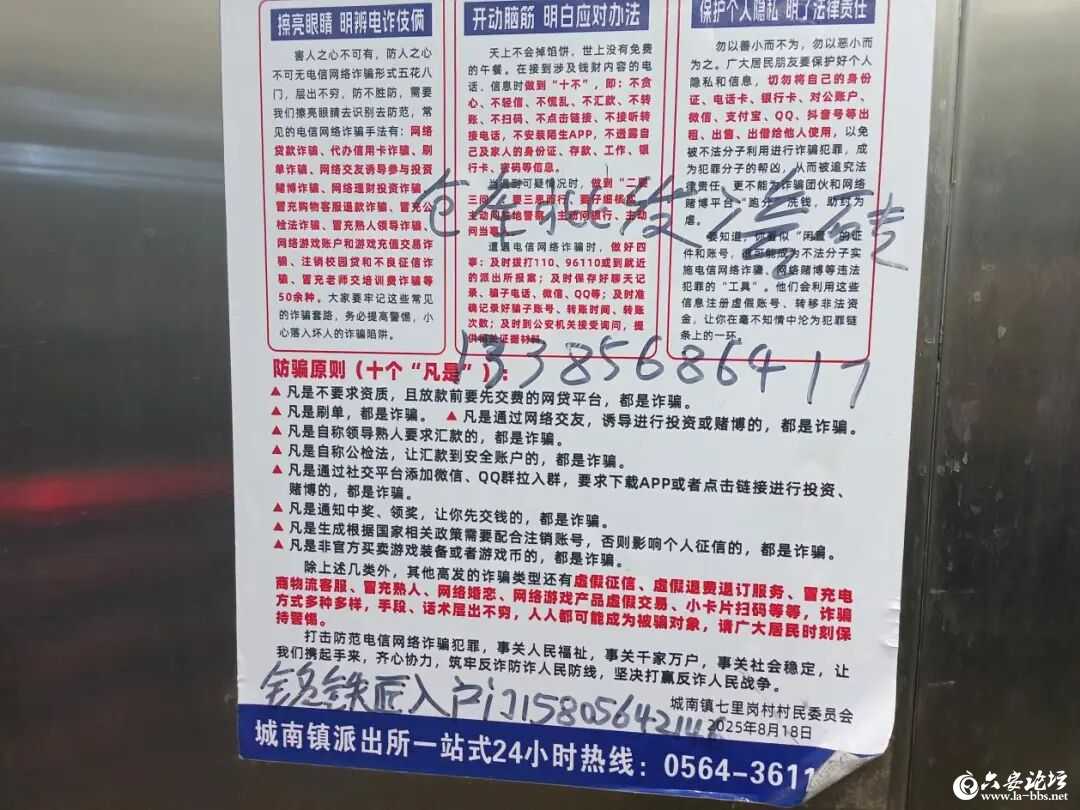 擦亮眼睛 明辨电诈伎俩
害人之心不可有，防人之心
不可无电信网络诈骗形式五花八
门，层出不穷，防不胜防，需要
我们擦亮眼睛去识别去防范，常
见的电信网络诈骗手法有：网络
贷款诈骗、代办信用卡诈骗、刷
单诈骗、网络交友诱导参与投资
赌博诈骗、网络理财投资诈骗、
冒充购物客服退款诈骗、冒充公
检法诈骗、冒充熟人领导诈骗、
网络游戏账户和游戏充值交易诈
骗、注销校园贷和不良征信诈
骗、冒充老师交培训费诈骗等
50余种。大家要牢记这些常见
的诈骗套路，务必提高警惕，小
心落入坏人的诈骗陷阱。
开动脑筋 明白应对办法
天上不会掉馅饼，世上没有免费
的午餐。在接到涉及钱财内容的电
话、信息时做到“十不”，即：不贪
心、不轻信、不慌乱、不汇款、不转
账、不扫码、不点击链接、不接听转
接电话，不安装陌生APP，不透露自
己及家人的身份证、存款、工作、银
行卡、密码等信息。
当遇到可疑情况时，做到“二
三问”，要三思而行、要仔细核实，
主动问当地警察、主动问银行、主动
问当事
遭遇电信网络诈骗时，做好四
事：及时拨打110、96110或到就近
的派出所报案；及时保存好聊天记
录、骗子电话、微信、QQ等；及时准
确记录好骗子账号、转账时间、转账
次数；及时到公安机关接受询问，提
供相关证据材料
保护个人隐私 明了法律责任
勿以善小而不为，勿以恶小而
为之。广大居民朋友要保护好个人
隐私和信息，切勿将自己的身份
证、电话卡、银行卡、对公账户、
微信、支付宝、QQ、抖音号等出
租、出售、出借给他人使用，以免
被不法分子利用进行诈骗犯罪，成
为犯罪分子的帮凶，从而被追究法
律责任，更不能为诈骗团伙和网络
赌博平台“跑分”洗钱，助纣为
虐。
要知道，你看似“闲置”的证
件和账号，也可能成为不法分子实
施电信网络诈骗、网络赌博等违法
犯罪的“工具”。他们会利用这些
信息注册虚假账号、转移非法资
金，让你在毫不知情中沦为犯罪链
条上的一环。
仓库批发瓷砖
13385686417
防骗原则（十个“凡是”）：
▲ 凡是不要求资质，且放款前要先交费的网贷平台，都是诈骗。
▲ 凡是刷单，都是诈骗。 ▲ 凡是通过网络交友，诱导进行投资或赌博的，都是诈骗。
▲ 凡是自称领导熟人要求汇款的，都是诈骗。
▲ 凡是自称公检法，让汇款到安全账户的，都是诈骗。
▲ 凡是通过社交平台添加微信、QQ群拉入群，要求下载APP或者点击链接进行投资、
赌博的，都是诈骗。
▲ 凡是通知中奖、领奖，让你先交钱的，都是诈骗。
▲ 凡是生成根据国家相关政策需要配合注销账号，否则影响个人征信的，都是诈骗。
▲ 凡是非官方买卖游戏装备或者游戏币的，都是诈骗。
除上述几类外，其他高发的诈骗类型还有虚假征信、虚假退费退订服务、冒充电
商物流客服、冒充熟人、网络婚恋、网络游戏产品虚假交易、小卡片扫码等等，诈骗
方式多种多样，手段、话术层出不穷，人人都可能成为被骗对象，请广大居民时刻保
持警惕。
打击防范电信网络诈骗犯罪，事关人民福祉，事关千家万户，事关社会稳定，让
我们携起手来，齐心协力，筑牢反诈防诈人民防线，坚决打赢反诈人民战争。
城南镇七里岗村村民委员会
2025年8月18日
铭铁匠入户门
城南镇派出所一站式24小时热线：0564-3611
六安论坛
www.la-bbs.net